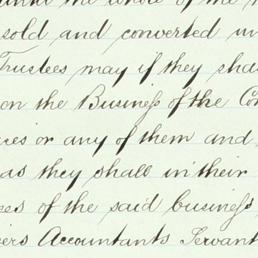 until the whole of the
sold and converted in
Trustees may if they sha
on the Businefs of the Co
ces or any of them and
as they shall in their
ees of the said businefs
iers Accountants Servant